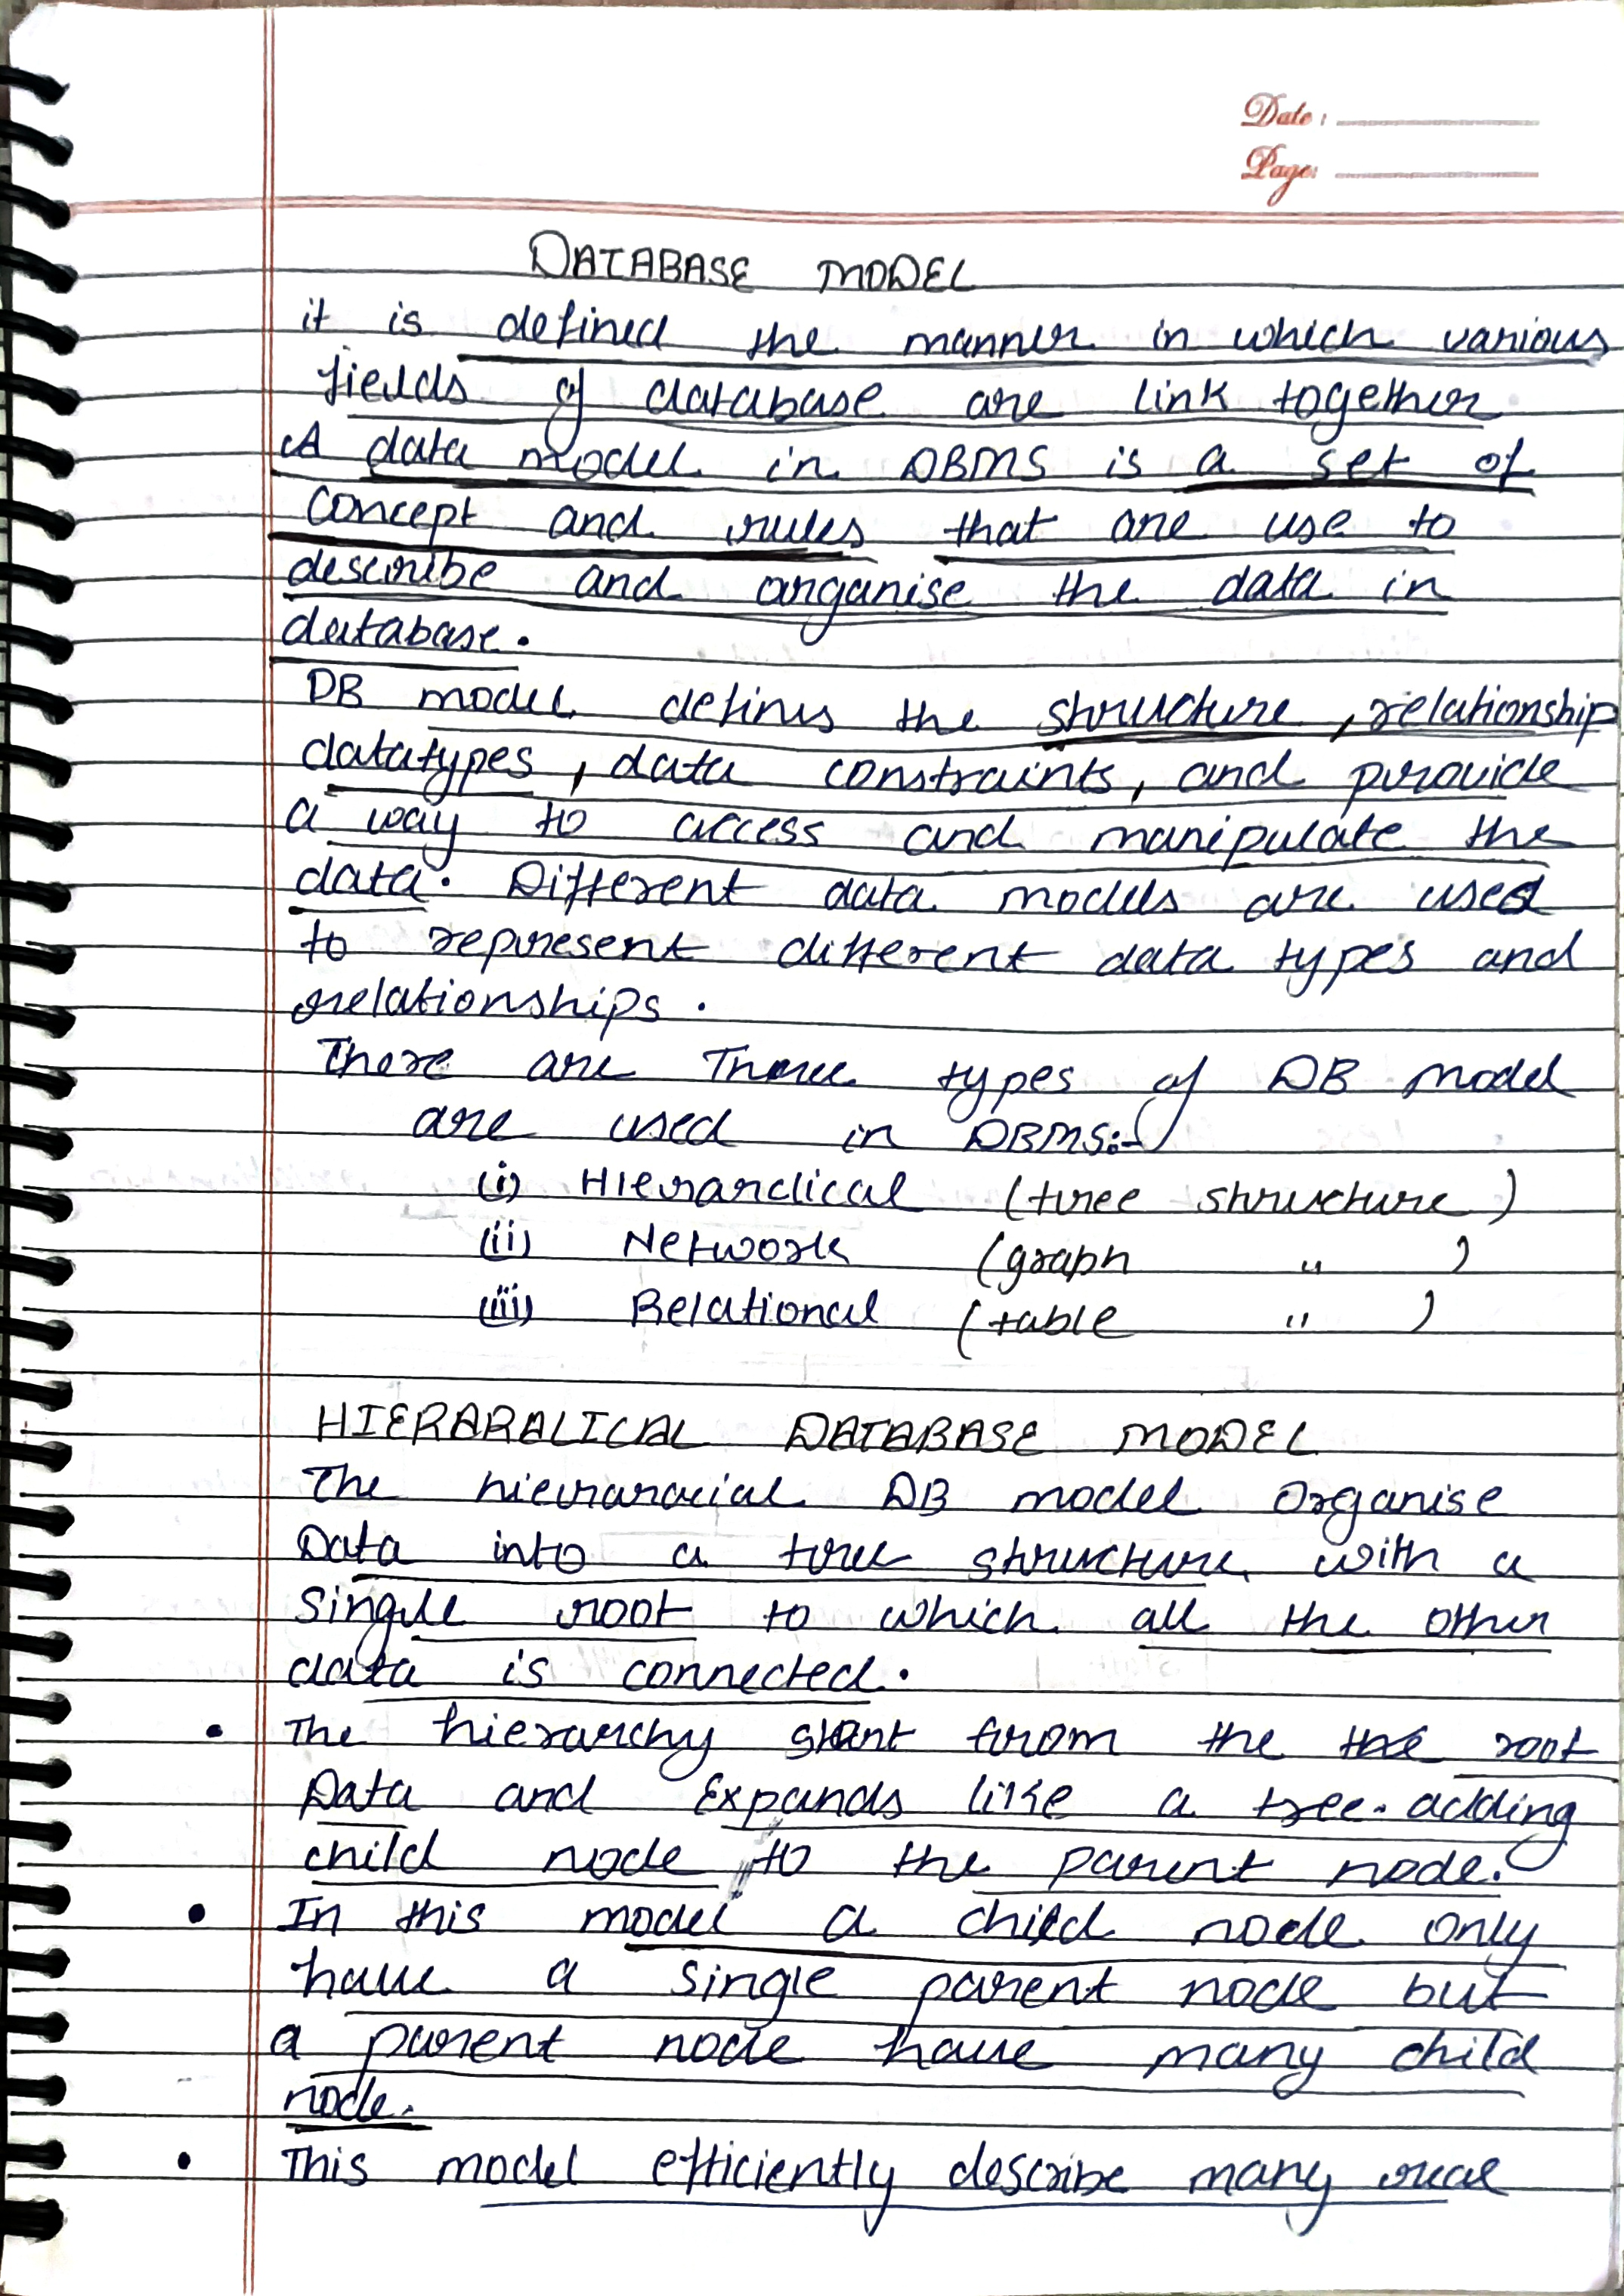 Date :
Page:
DATABASE MODEL
it is defined the manner in which various
fields of database are link together
A data model in DBMS is a set of
Concept and rules that are use to
describe and organise the data in
database.
DB model defines the structure, relationship
datatypes, data constraints, and provide
a way to access and manipulate the
data. Different data models are used
to represent different data types and
relationships.
There are Three types of DB model
are used in DBMS:-
(i) Hierarclical (tree structure)
(ii) Network (graph " )
(iii) Relational (table " )
HIERARALICAL DATABASE MODEL
The hierararcial DB model Organise
Data into a tree structure with a
Single root to which all the other
data is connected.
• The hierarchy start from the the root
Data and Expands like a tree. adding
child node to the parent node.
• In this model a child node only
have a single parent node but
a parent node have many child
node.
• This model efficiently describe many real